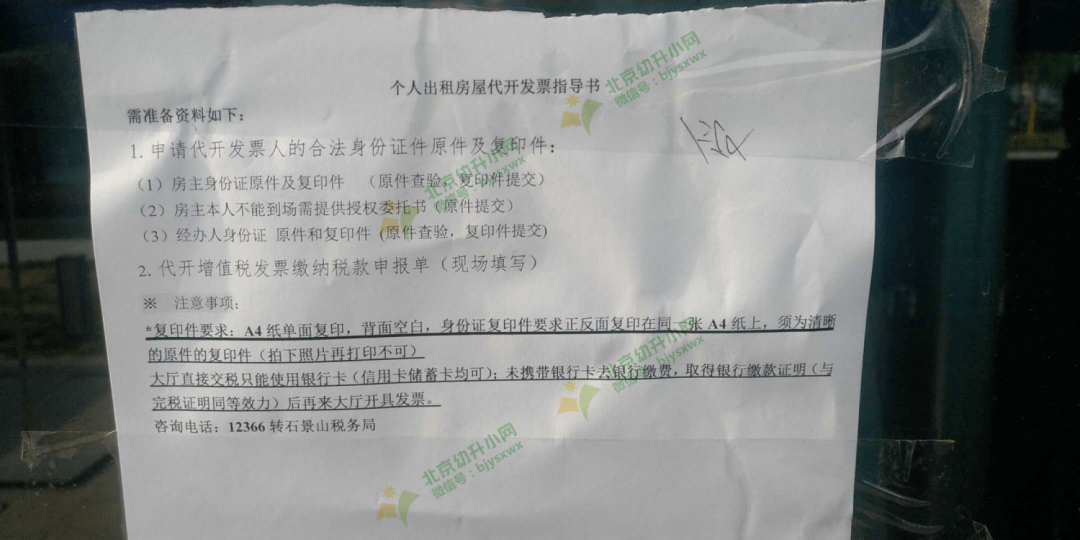 个人出租房屋代开发票指导书
需准备资料如下：
1. 申请代开发票人的合法身份证件原件及复印件：
（1）房主身份证原件及复印件　（原件查验，复印件提交）
（2）房主本人不能到场需提供授权委托书（原件提交）
（3）经办人身份证 原件和复印件 (原件查验，复印件提交)
2. 代开增值税发票缴纳税款申报单（现场填写）
※　注意事项：
*复印件要求：A4 纸单面复印，背面空白，身份证复印件要求正反面复印在同一张 A4 纸上，须为清晰
的原件的复印件（拍下照片再打印不可）
大厅直接交税只能使用银行卡（信用卡储蓄卡均可）；未携带银行卡去银行缴费，取得银行缴款证明（与
完税证明同等效力）后再来大厅开具发票。
咨询电话：12366 转石景山税务局
北京幼升小网
微信号：bjysxwx
北京幼升小网
微信号：bjysxwx
北京幼升小网
微信号：bjysxwx
北京幼升小网
微信号：bjysxwx